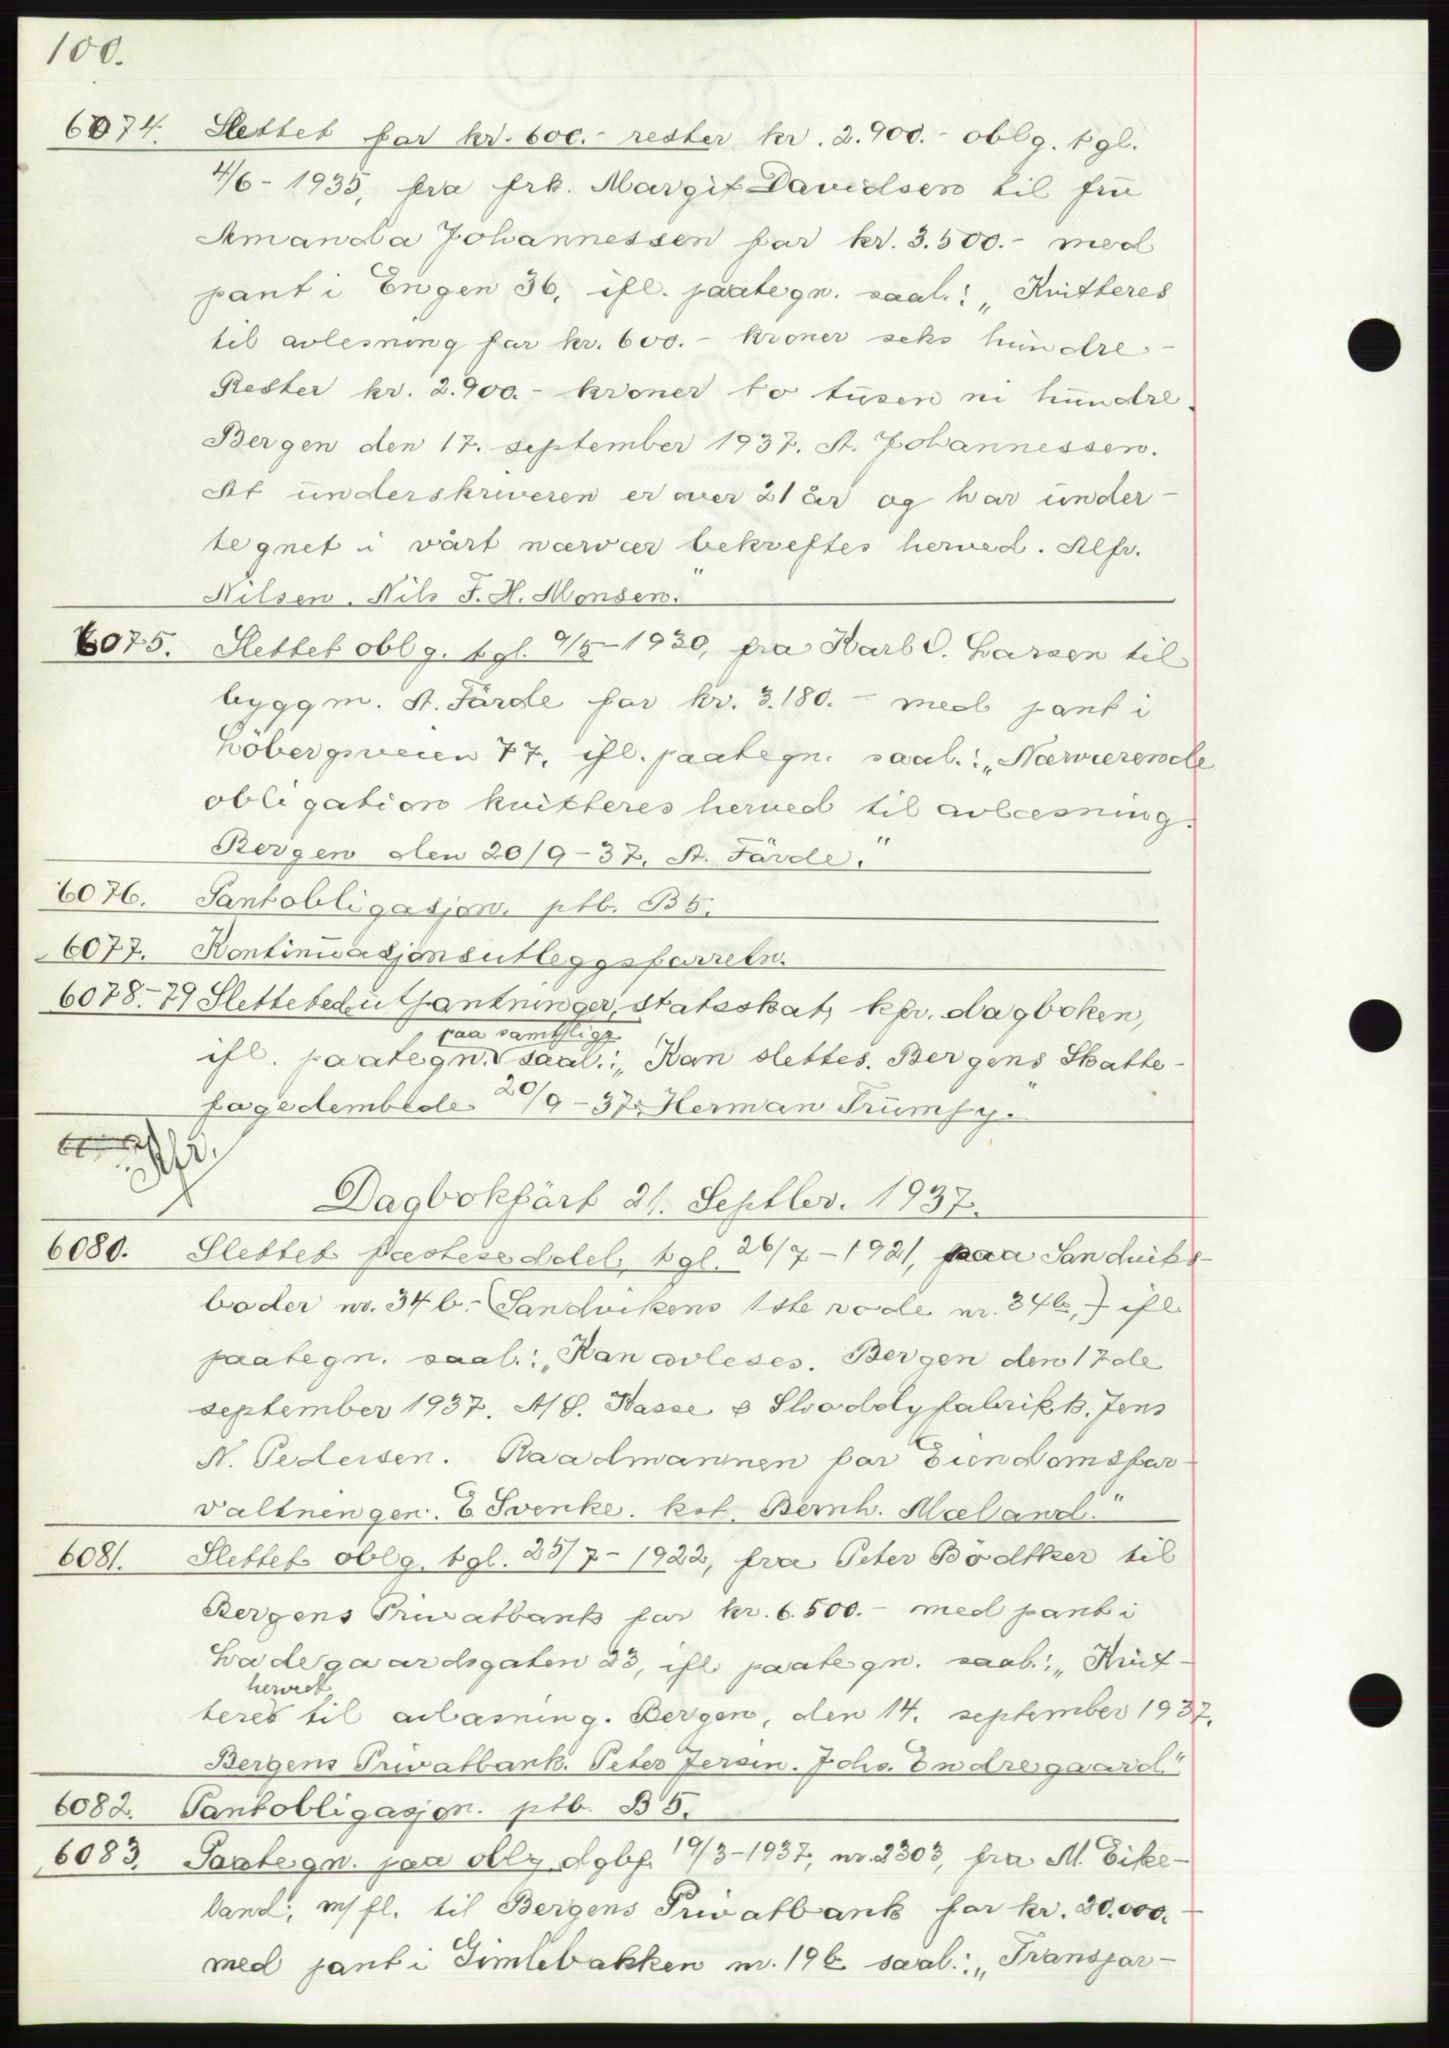 100.
6074. Slettet for kr. 600.- rester kr. 2.900.- oblg. tgl.
4/6 - 1935, fra frk. Margit Davidsen til frü
Amanda Johannessen for kr. 3.500.- med
pant i Engen 36, ifl. paategn. saal.: „Kvitteres
til avlesning for kr. 600.- kroner seks hündre -
Rester kr. 2.900.- kroner to tüsen ni hündre.
Bergen den 17. september 1937. A. Johannessen.
At ünderskriveren er over 21 år og har ünder-
tegnet i vårt nærvær bekreftes herved. Alfr.
Nilsen. Nils F. H. Monsen."
6075. Slettet oblg. tgl. 9/5 - 1930, fra Karl O. Larsen til
byggm. A. Førde for kr. 3.180.- med pant i
Løbergsveien 77, ifl. paategn. saal.: „Nærværende
obligation kvitteres herved til avlæsning.
Bergen den 20/9 - 37. A. Førde."
6076. Pantobligasjon. ptb. B5.
6077. Kontinüasjonsutleggsforretn.
6078.-79 Slettet utpantninger, statsskat, kfr. dagboken,
paa samtlige
ifl. paategn. saal.: „Kan slettes. Bergens Skatte-
fogedembede 20/9 - 37. Herman Trümpy."
Alfr.
Dagbokført 21. Septbr. 1937.
6080. Slettet festeseddel, tgl. 26/7 - 1921, paa Sandviks-
boder nr. 34 b. - (Sandvikens 1ste rode nr. 34b,) ifl
paategn. saal.: „Kan avleses. Bergen den 17de
september 1937. A/S. Kasse & Shoddyfabrikk. Jens
N. Pedersen. Raadmannen for Eiendomsfor-
valtningen. E. Svenke. kst. Bernh. Mæland."
6081. Slettet oblg. tgl. 25/7 - 1922, fra Peter Bødtker til
Bergens Privatbank for kr. 6.500.- med pant i
Ladegaardsgaten 23, ifl paategn. saal.: „Kvit-
herved
teres til avlæsning. Bergen, den 14. september 1937.
Bergens Privatbank. Peter Jersin. Johs. Endregaard."
6082. Pantobligasjon. ptb. B5.
6083. Paategn. paa oblg dgbf. 19/3 - 1937, nr. 2303, fra M. Eike-
land, m/fl. til Bergens Privatbank for kr. 20.000.-
med pant i Gimlebakken nr. 19b saal.: „Transpor-